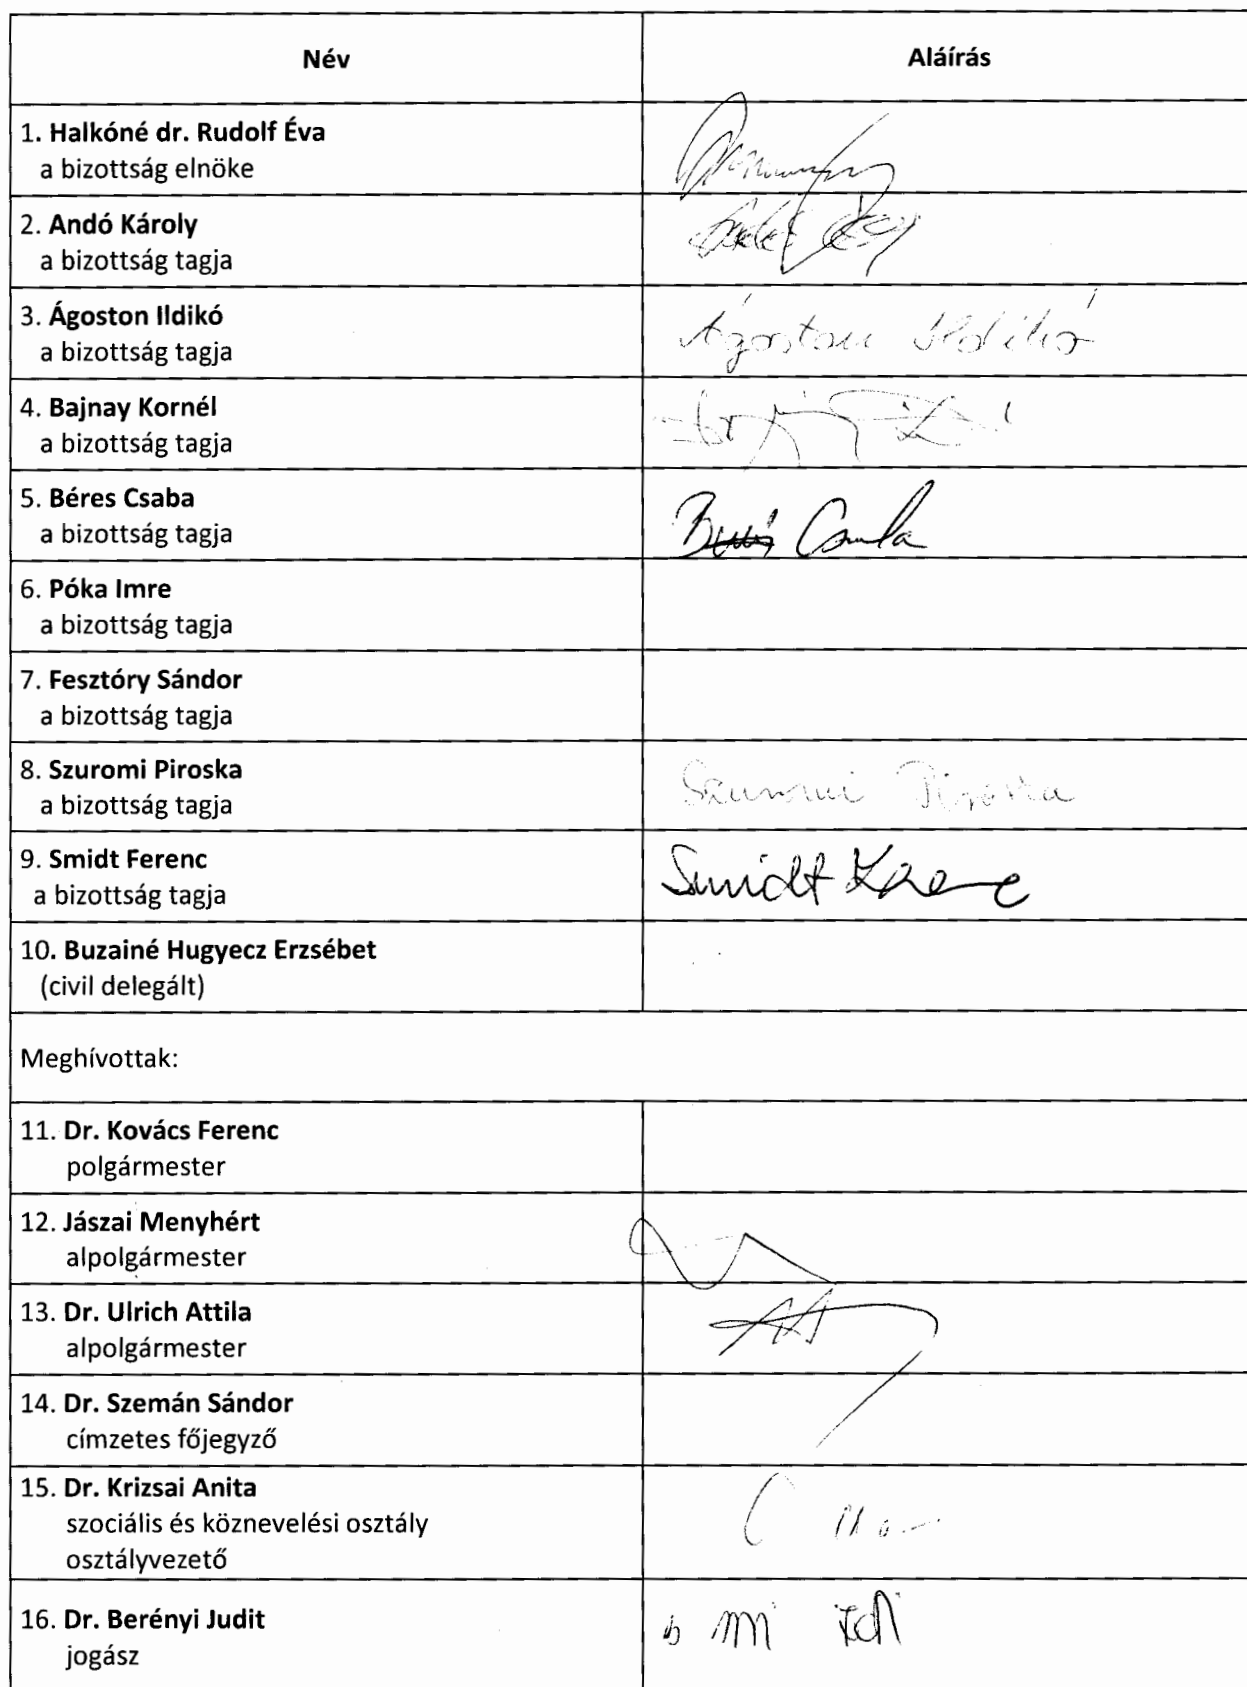 Név Aláírás
1. Halkóné dr. Rudolf Éva
a bizottság elnöke
2. Andó Károly
a bizottság tagja
3. Ágoston Ildikó
a bizottság tagja
Ágoston Ildikó
4. Bajnay Kornél
a bizottság tagja
5. Béres Csaba
a bizottság tagja
Béres Csaba
6. Póka Imre
a bizottság tagja
7. Fesztóry Sándor
a bizottság tagja
8. Szuromi Piroska
a bizottság tagja
Szuromi Piroska
9. Smidt Ferenc
a bizottság tagja
Smidt Ferenc
10. Buzainé Hugyecz Erzsébet
(civil delegált)
Meghívottak:
11. Dr. Kovács Ferenc
polgármester
12. Jászai Menyhért
alpolgármester
13. Dr. Ulrich Attila
alpolgármester
14. Dr. Szemán Sándor
címzetes főjegyző
15. Dr. Krizsai Anita
szociális és köznevelési osztály
osztályvezető
16. Dr. Berényi Judit
jogász